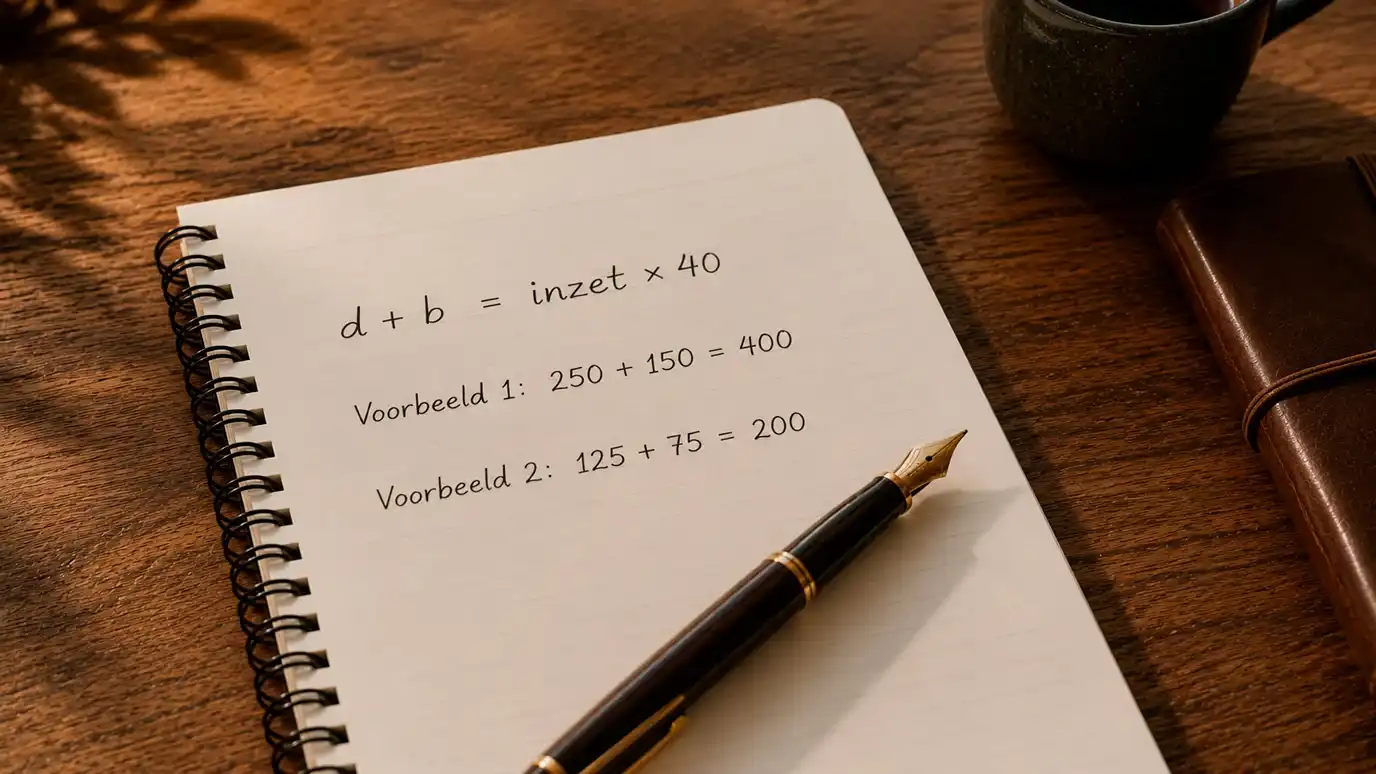 d + b = inzet × 40
Voorbeeld 1: 250 + 150 = 400
Voorbeeld 2: 125 + 75 = 200